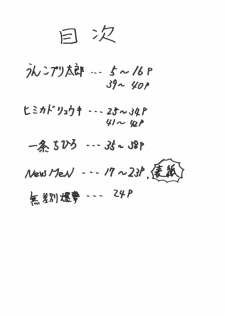 目次
うんこブリ太郎 --- 5〜16P
39〜40P
ヒミカドリュウキ --- 25〜34P
41〜42P
一条ちひろ --- 35〜38P
NewMeN --- 17〜23P, 表紙
無差別爆撃 --- 24P